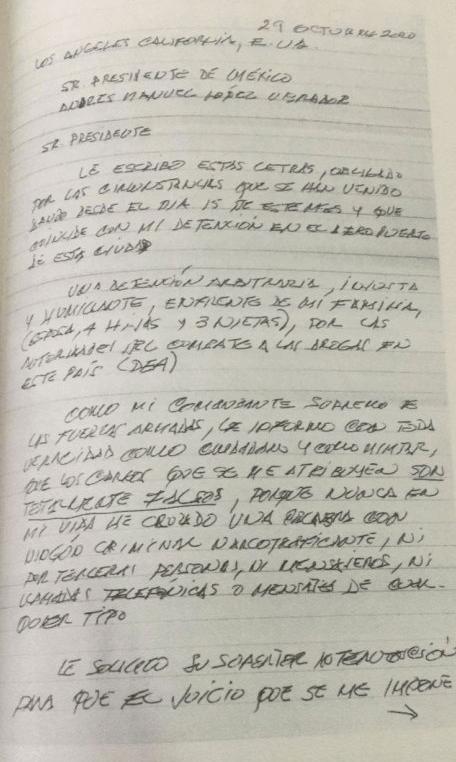 29 OCTUBRE 2020
LOS ANGELES CALIFORNIA, E.U.A.
SR. PRESIDENTE DE MÉXICO
ANDRÉS MANUEL LÓPEZ OBRADOR
SR. PRESIDENTE
LE ESCRIBO ESTAS LETRAS, OBLIGADO
POR LAS CIRCUNSTANCIAS QUE SE HAN VENIDO
DANDO DESDE EL DIA 15 DE ESTE MES Y QUE
COINCIDE CON MI DETENCIÓN EN EL AEROPUERTO
DE ESTA CIUDAD
UNA DETENCIÓN ARBITRARIA, INJUSTA
Y HUMILLANTE, ENFRENTE DE MI FAMILIA,
(ESPOSA, 4 HIJAS Y 3 NIETAS), POR LAS
AUTORIDADES DEL COMBATE A LAS DROGAS EN
ESTE PAÍS (DEA)
COMO MI COMANDANTE SUPREMO DE
LAS FUERZAS ARMADAS, LE INFORMO CON TODA
VERACIDAD COMO CIUDADANO Y COMO MILITAR,
QUE LOS CARGOS QUE SE ME ATRIBUYEN SON
TOTALMENTE FALSOS, PORQUE NUNCA EN
MI VIDA HE CRUZADO UNA PALABRA CON
NINGÚN CRIMINAL NARCOTRAFICANTE, NI
POR TERCERAS PERSONAS, NI MENSAJEROS, NI
LLAMADAS TELEFÓNICAS O MENSAJES DE CUAL-
QUIER TIPO
LE SOLICITO SU SUPERIOR
PARA QUE EL JUICIO QUE SE ME IMPONE
→